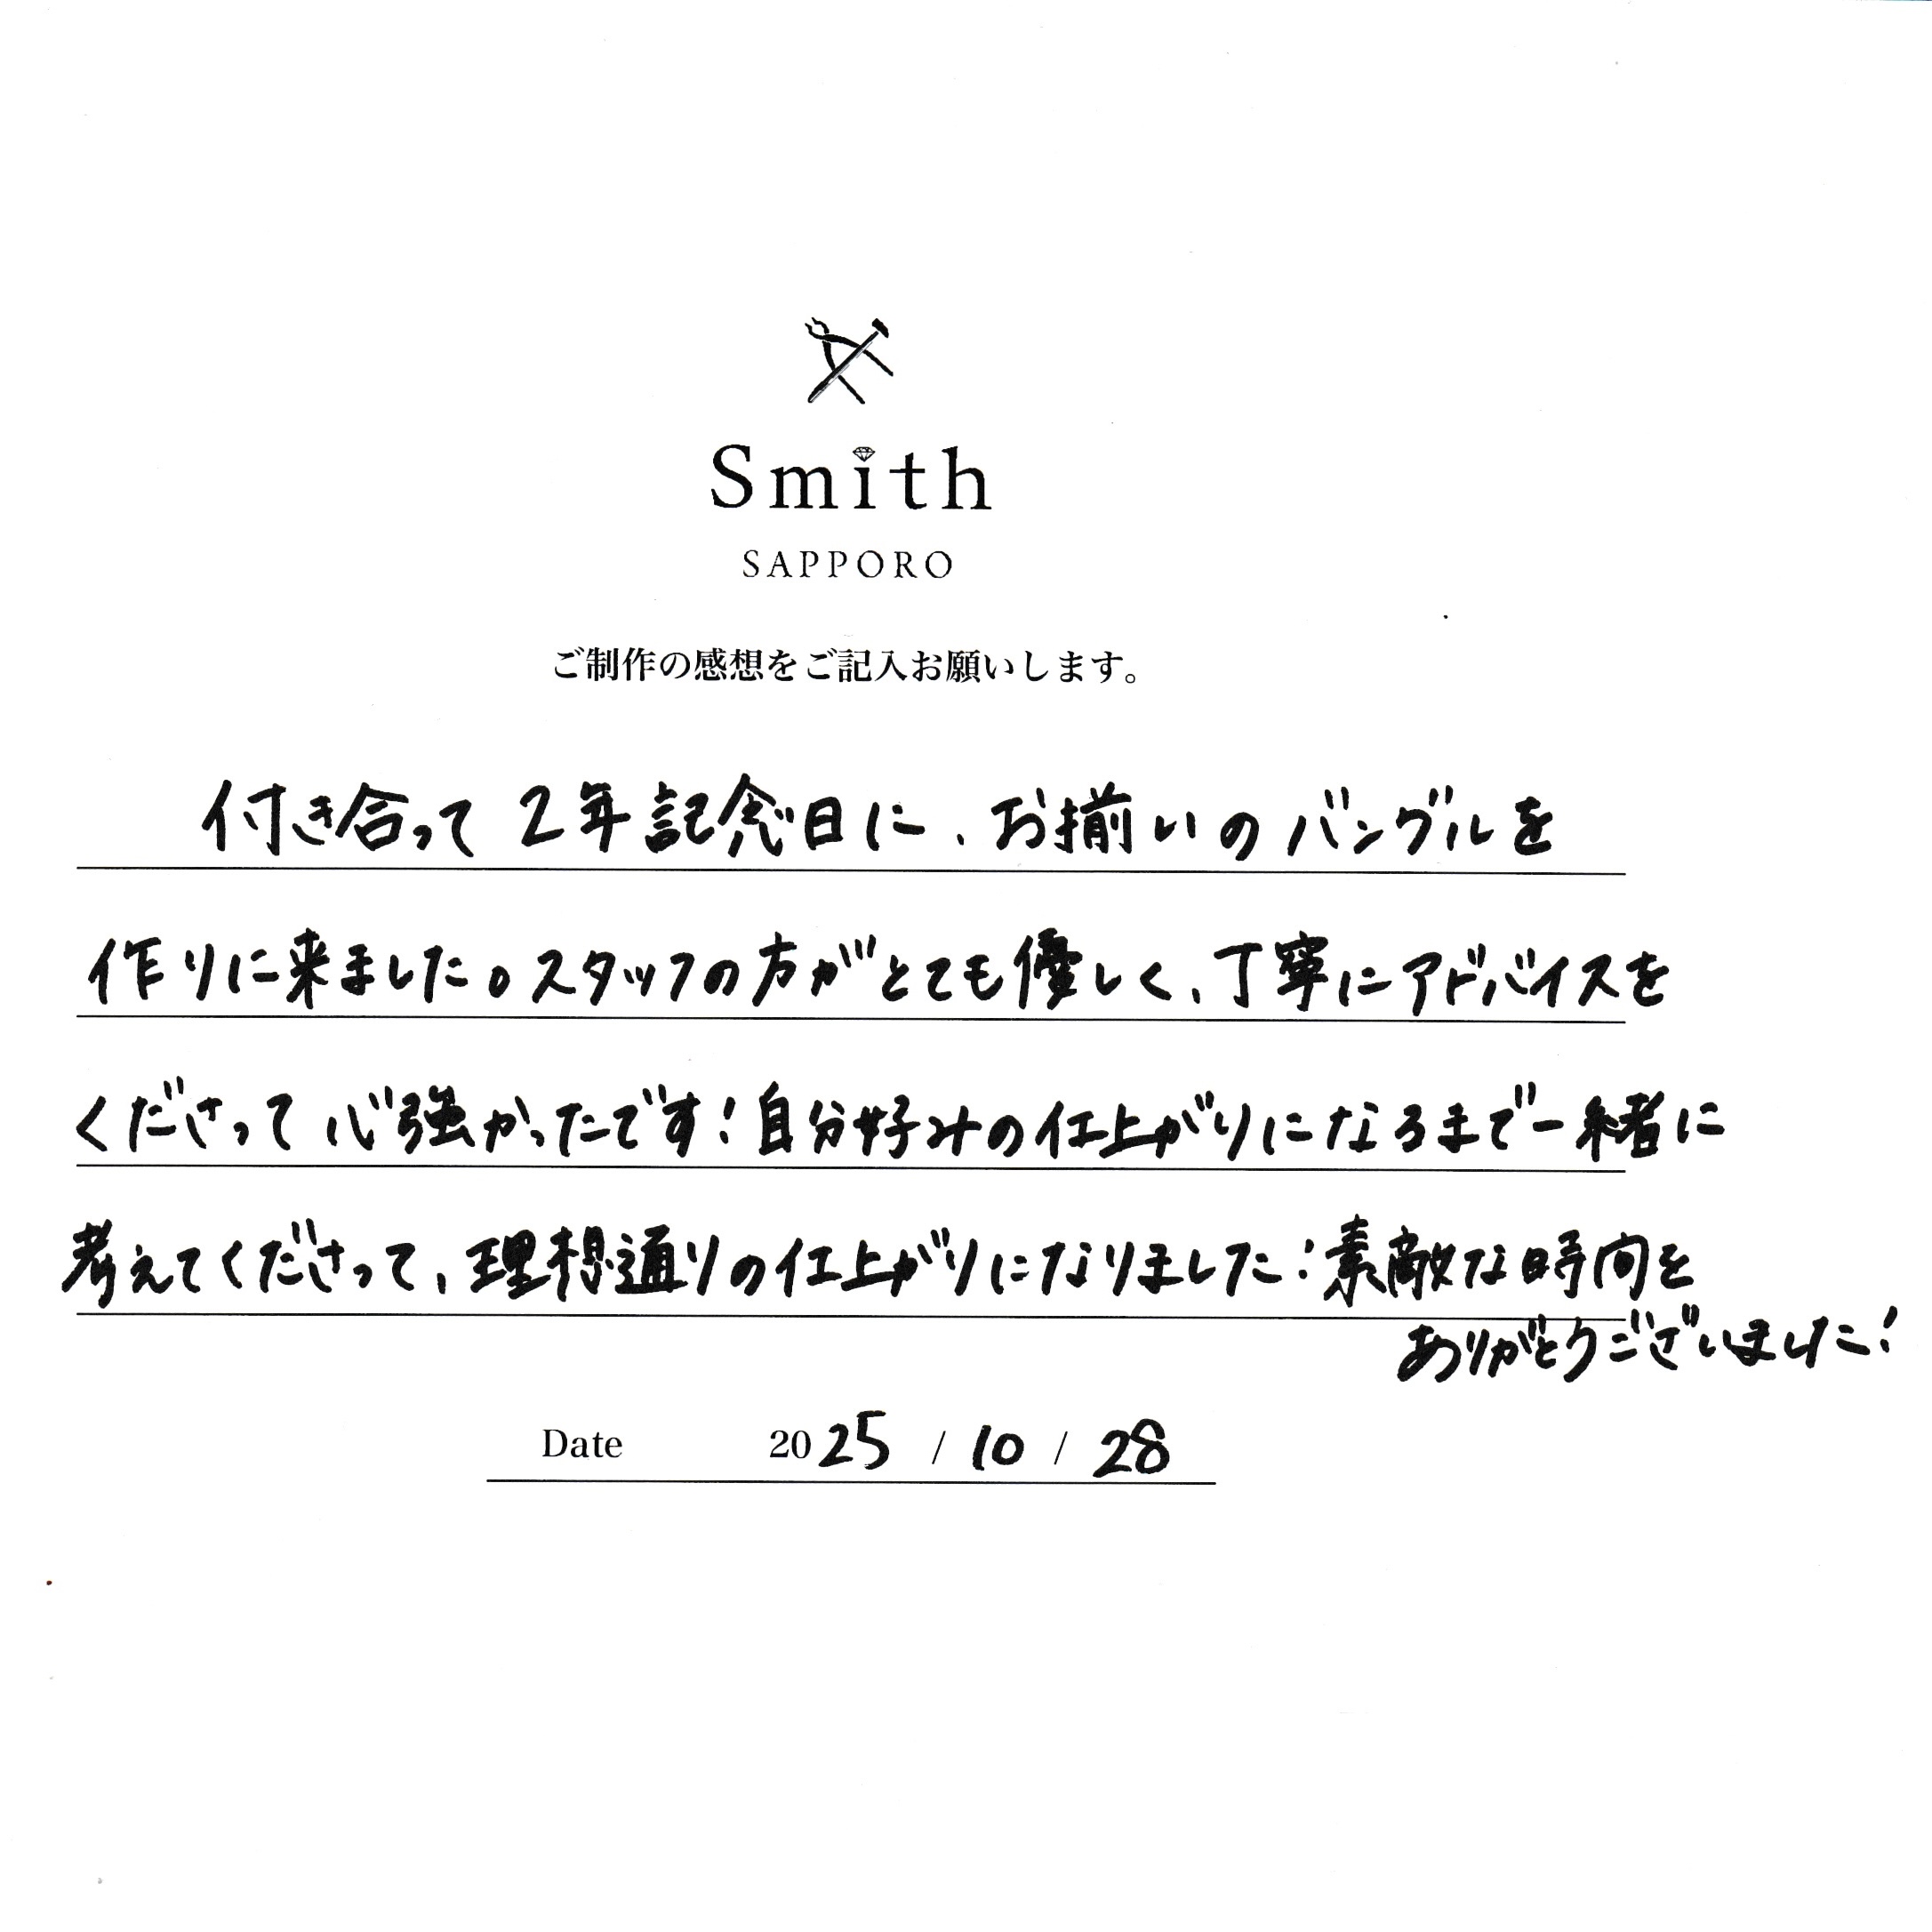 Smith
SAPPORO
ご制作の感想をご記入お願いします。
付き合って2年記念日に、お揃いのバングルを
作りに来ました。スタッフの方がとても優しく、丁寧にアドバイスを
くださって心強かったです!自分好みの仕上がりになるまで一緒に
考えてくださって、理想通りの仕上がりになりました!素敵な時間を
ありがとうございました!
Date 2025 / 10 / 28